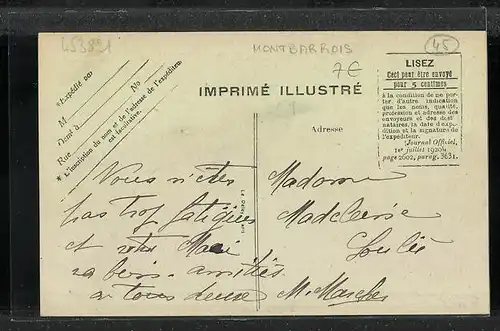 453891
MONTBARROIS
7€
45
*Expédié par
M
Demt à
Rue
No
* L'inscription du nom et de l'adresse de l'expéditeur
est facultative.
IMPRIMÉ ILLUSTRÉ
Adresse
LISEZ
Ceci peut être envoyé
pour 5 centimes
à la condition de ne por-
ter, d'autre indication
que les noms, qualité,
profession et adresse des
envoyeurs et des desti-
nataires, la date d'expé-
dition et la signature de
l'expéditeur.
(Journal Officiel,
1er juillet 1920),
page 2602, parag. 3631.
Vous n'êtes
pas trop fatiguées
et votre Mari
va bien. amitiés
à tous deux
Madame
Madeleine
M.